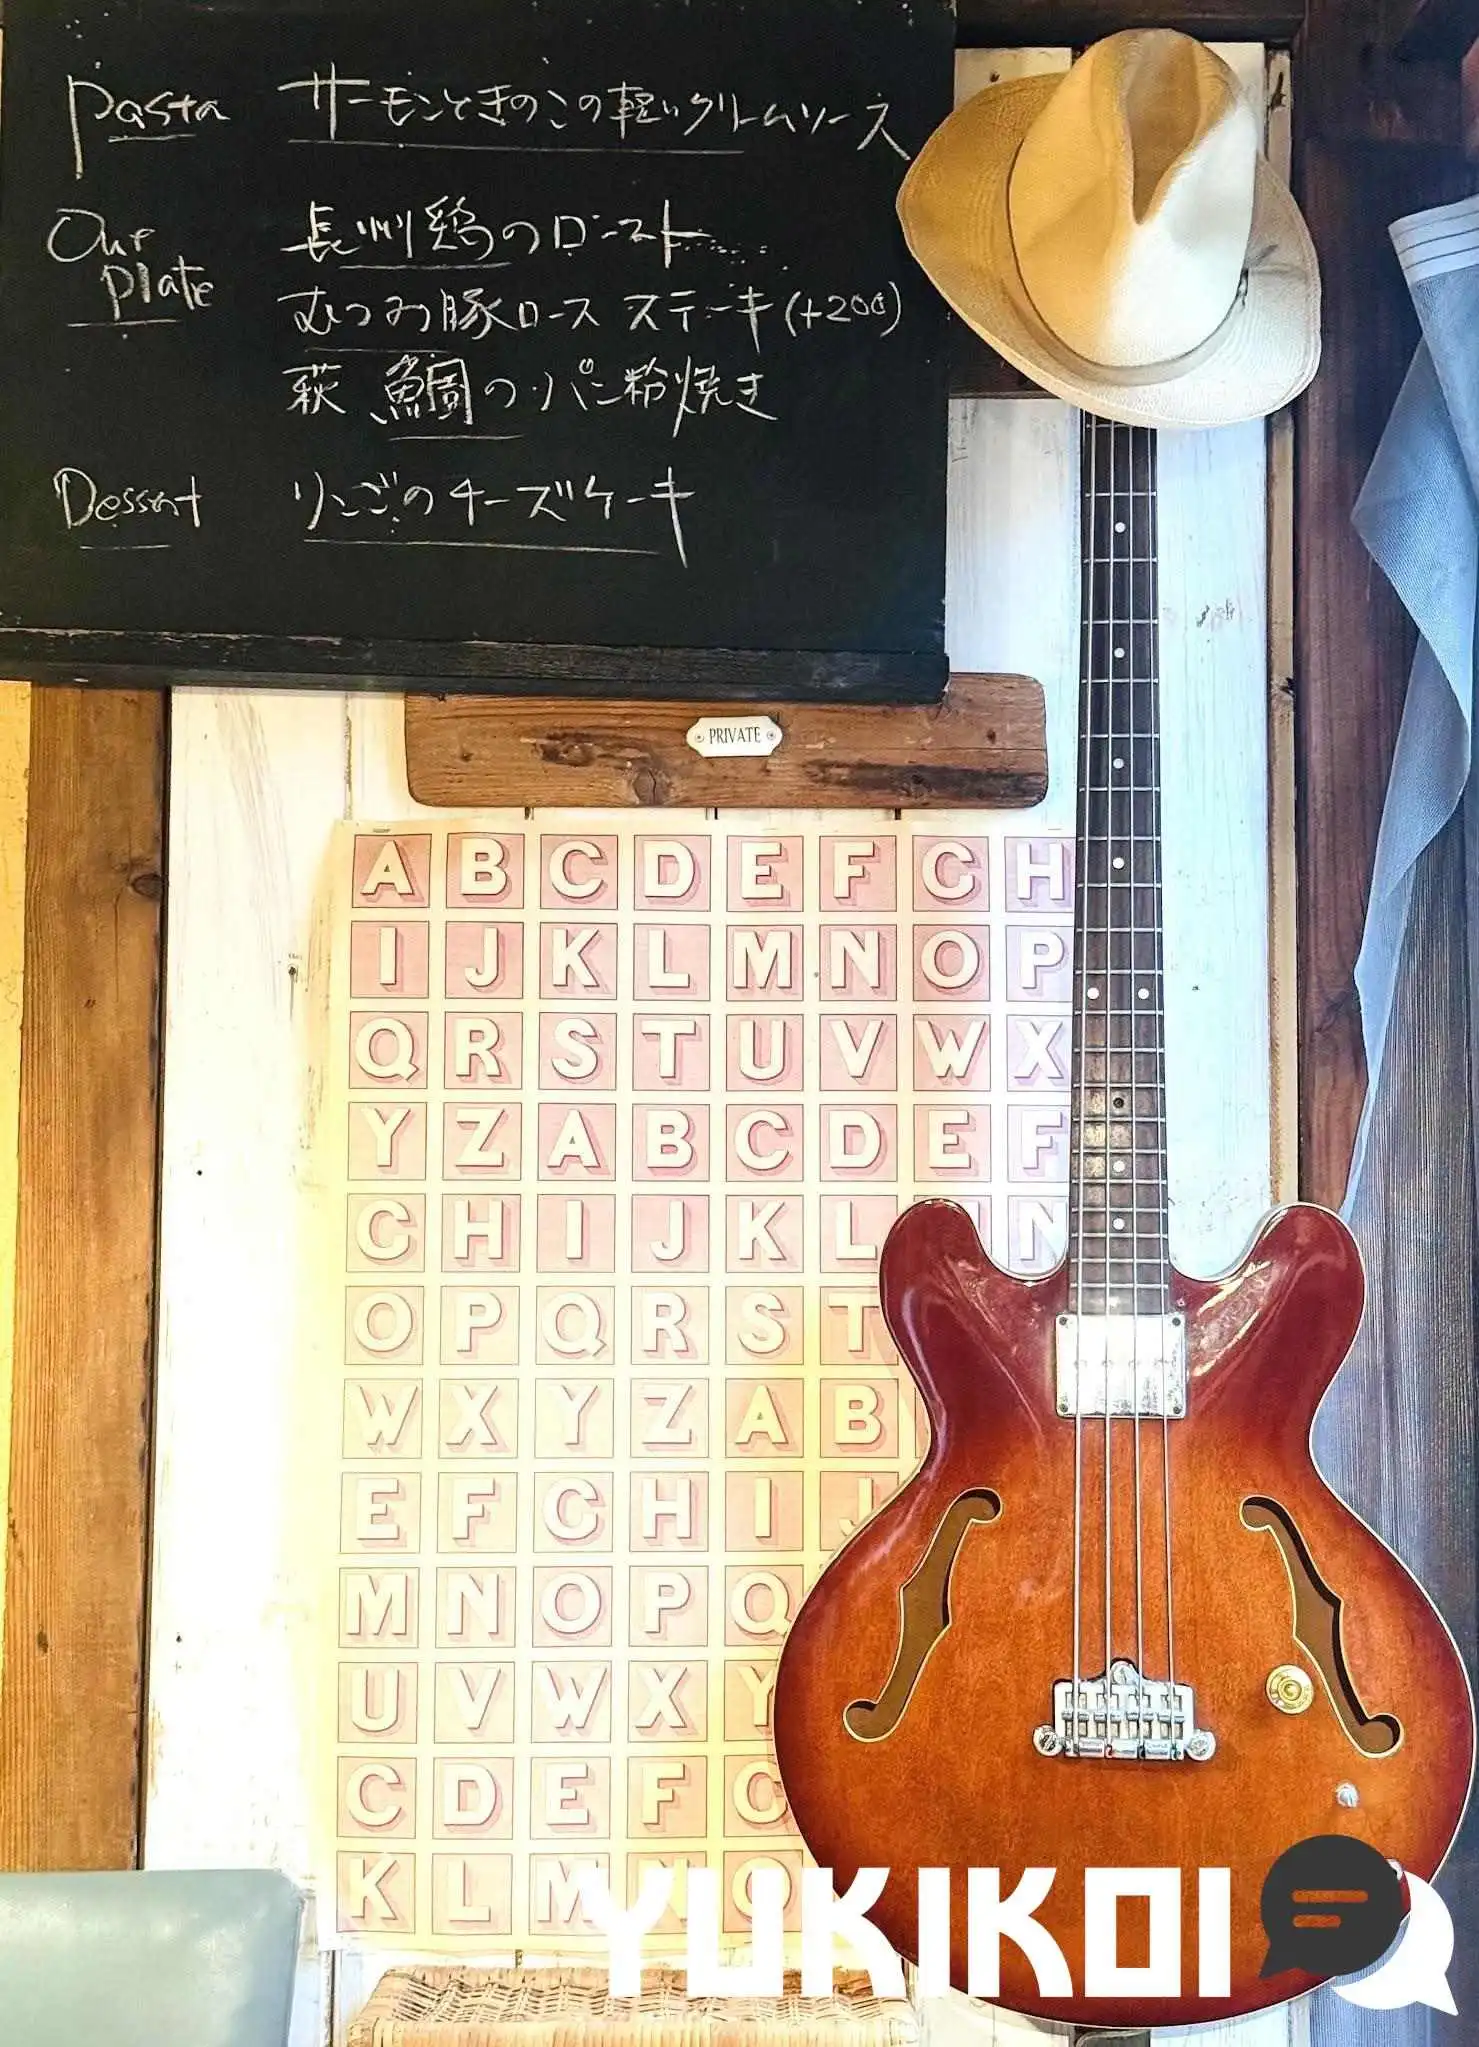 Pasta サーモンときのこの軽いクリームソース
Our plate 長州鶏のロースト
むつみ豚ロース ステーキ(+200)
萩 鯛のパン粉焼き
Dessert りんごのチーズケーキ
PRIVATE
A B C D E F G H
I J K L M N O P
Q R S T U V W X
Y Z A B C D E F
G H I J K L N
O P Q R S T
W X Y Z A B
E F G H I J
M N O P Q
U V W X Y
C D E F G
K L M N O
YUKIKOI